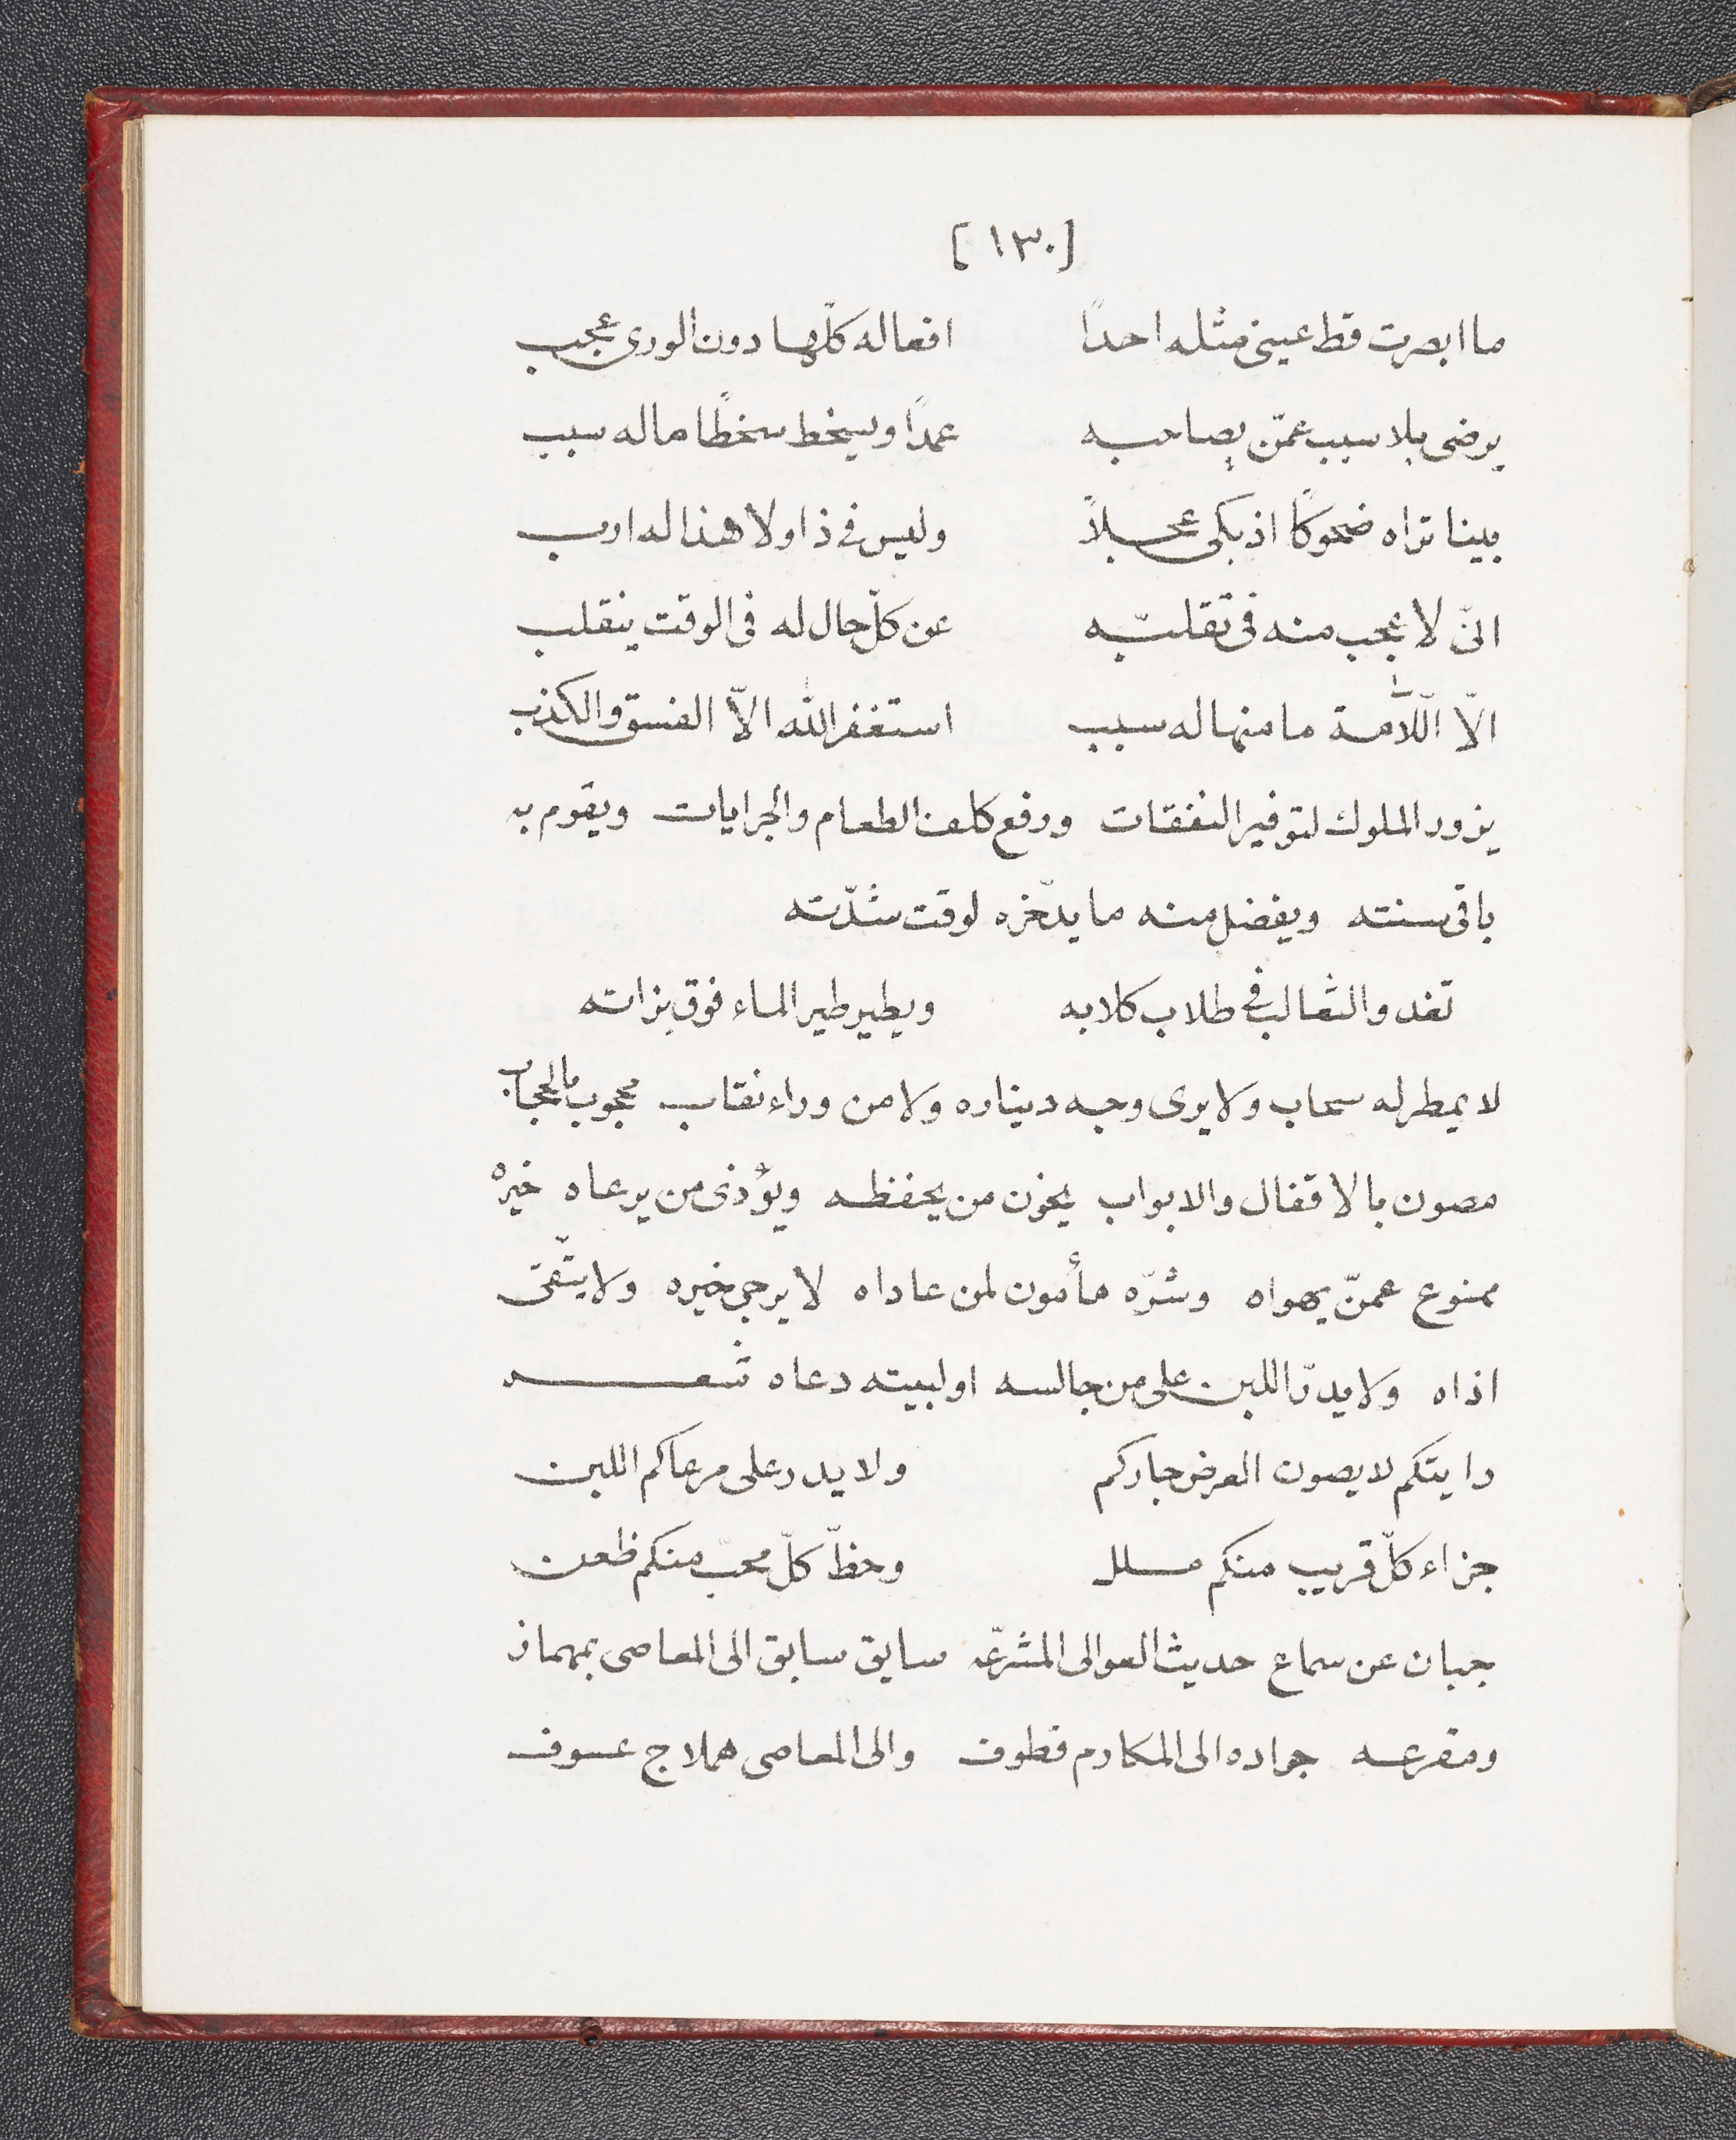 [١٣٠]
ما ابصرت قط عينى مثله احدًا افعاله كلّها دون الورى عجب
يرضى بلا سبب عمّن يصاحبه عمدًا ويسخط سخطًا ما له سبب
بينا تراه ضحوكًا اذ بكى عجلاً وليس فى ذا ولا هذا له ارب
انّى لا عجب منه فى تقلبّه عن كلّ حال له فى الوقت ينقلب
الّا اللّآمة ما منها له سبب استغفر الله الاّ الفسق والكذب
يزور الملوك لتوفير النفقات ورفع كلف الطعام والجرايات ويقوم به
باقى سنته ويفضل منه ما يدّخره لوقت شدّته
تغدو الثعالب فى طلاب كلابه ويطير طير الماء فوق بزاته
لا يمطر له سحاب ولا يرى وجه ديناره ولا من وراء نقاب محجوب بالحجاب
مصون بالاقفال والابواب يخون من يحفظه ويؤذى من يرعاه خيره
ممنوع عمّن يهواه وشرّه مأمون لمن عاداه لا يرجى خيره ولا يتّقى
اذاه ولا يدرّ اللبن على من جالسه او لبيته دعاه شعر
رايتكم لا يصون العرض جاركم ولا يدر على مرعاكم اللبن
جزاء كلّ قريب منكم ملل وحظّ كلّ محبّ منكم ظعن
جبان عن سماع حديث العوالى المشرعّه سايق سابق الى المعاصى بمهماز
ومقرعه جواده الى المكارم قطوف والى المعاصى هملاج عسوف